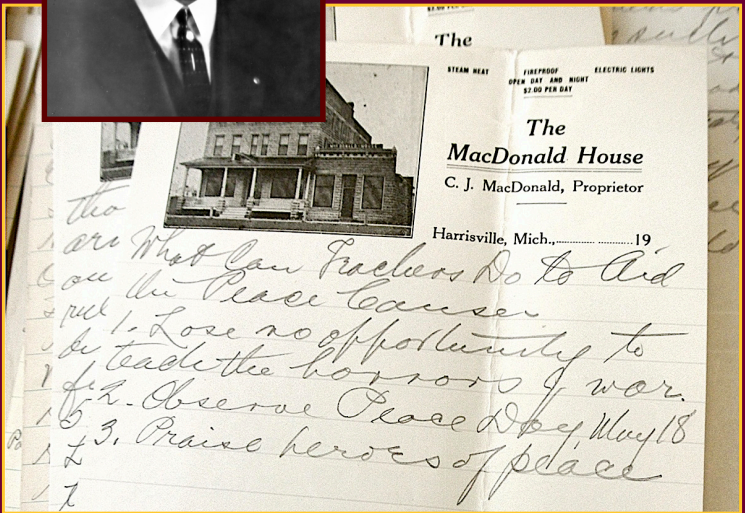 The
STEAM HEAT FIREPROOF ELECTRIC LIGHTS
OPEN DAY AND NIGHT
$2.00 PER DAY
The
MacDonald House
C. J. MacDonald, Proprietor
Harrisville, Mich., 19
What Can Teachers Do to Aid
the Peace Cause
1. Lose no opportunity to
teach the horrors of war.
2. Observe Peace Day, May 18
3. Praise heroes of peace